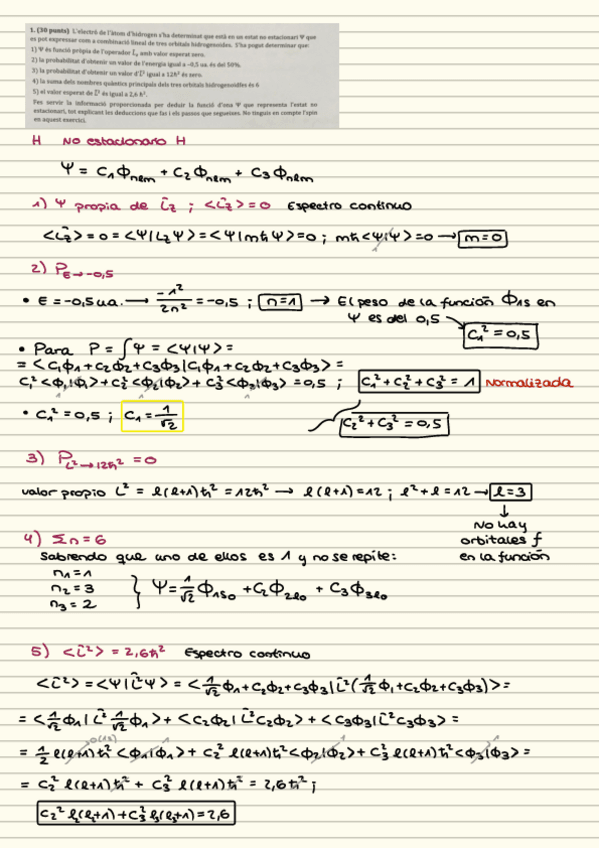 1. (30 punts) L'electró de l'àtom d'hidrogen s'ha determinat que està en un estat no estacionari Ψ que
es pot expressar com a combinació lineal de tres orbitals hidrogenoides. S'ha pogut determinar que:
1) Ψ és funció pròpia de l'operador L̂z amb valor esperat zero.
2) la probabilitat d'obtenir un valor de l'energia igual a −0,5 ua. és del 50%.
3) la probabilitat d'obtenir un valor d'L̂² igual a 12ħ² és zero.
4) la suma dels nombres quàntics principals dels tres orbitals hidrogenoides és 6
5) el valor esperat de L̂² és igual a 2,6 ħ².
Feu servir la informació proporcionada per deduir la funció d'ona Ψ que representa l'estat no
estacionari, tot explicant les deduccions que feu i els passos que seguiu. No tingueu en compte l'spin
en aquest exercici.
H No estacionario H
Ψ = C1 Φnem + C2 Φnem + C3 Φnem
1) Ψ propia de L̂z ; <L̂z> = 0 Espectro continuo
<L̂z> = 0 = <Ψ|LzΨ> = <Ψ|mħΨ> = 0 ; mħ<Ψ|Ψ> = 0 → m=0
2) PE→-0,5
• E = -0,5 u.a. → -1²/2n² = -0,5 ; n=1 → El peso de la función Φ1s en
Ψ es del 0,5
C1² = 0,5
• Para P = ∫Ψ = <Ψ|Ψ> =
= <C1Φ1 + C2Φ2 + C3Φ3|C1Φ1 + C2Φ2 + C3Φ3> =
C1²<Φ1|Φ1> + C2²<Φ2|Φ2> + C3²<Φ3|Φ3> = 0,5 ; C1² + C2² + C3² = 1 Normalizada
• C1² = 0,5 ; C1 = 1/√2
C2² + C3² = 0,5
3) PL²→12ħ² = 0
valor propio L² = l(l+1)ħ² = 12ħ² → l(l+1) = 12 ; l² + l = 12 → l=3
↓
No hay
orbitales f
en la función
4) Σn = 6
Sabrendo que uno de ellos es 1 y no se repite:
n1 = 1
n2 = 3
n3 = 2
} Ψ = 1/√2 Φ1s0 + C2Φ2l0 + C3Φ3l0
5) <L̂²> = 2,6ħ² Espectro continuo
<L̂²> = <Ψ|L̂²Ψ> = <1/√2 Φ1 + C2Φ2 + C3Φ3|L̂²(1/√2 Φ1 + C2Φ2 + C3Φ3)> =
= <1/√2 Φ1|L̂² 1/√2 Φ1> + <C2Φ2|L̂²C2Φ2> + <C3Φ3|L̂²C3Φ3> =
= 1/2 l(l+1)ħ²<Φ1|Φ1> + C2² l(l+1)ħ²<Φ2|Φ2> + C3² l(l+1)ħ²<Φ3|Φ3> =
= C2² l(l+1)ħ² + C3² l(l+1)ħ² = 2,6ħ² ;
C2² l2(l2+1) + C3² l3(l3+1) = 2,6